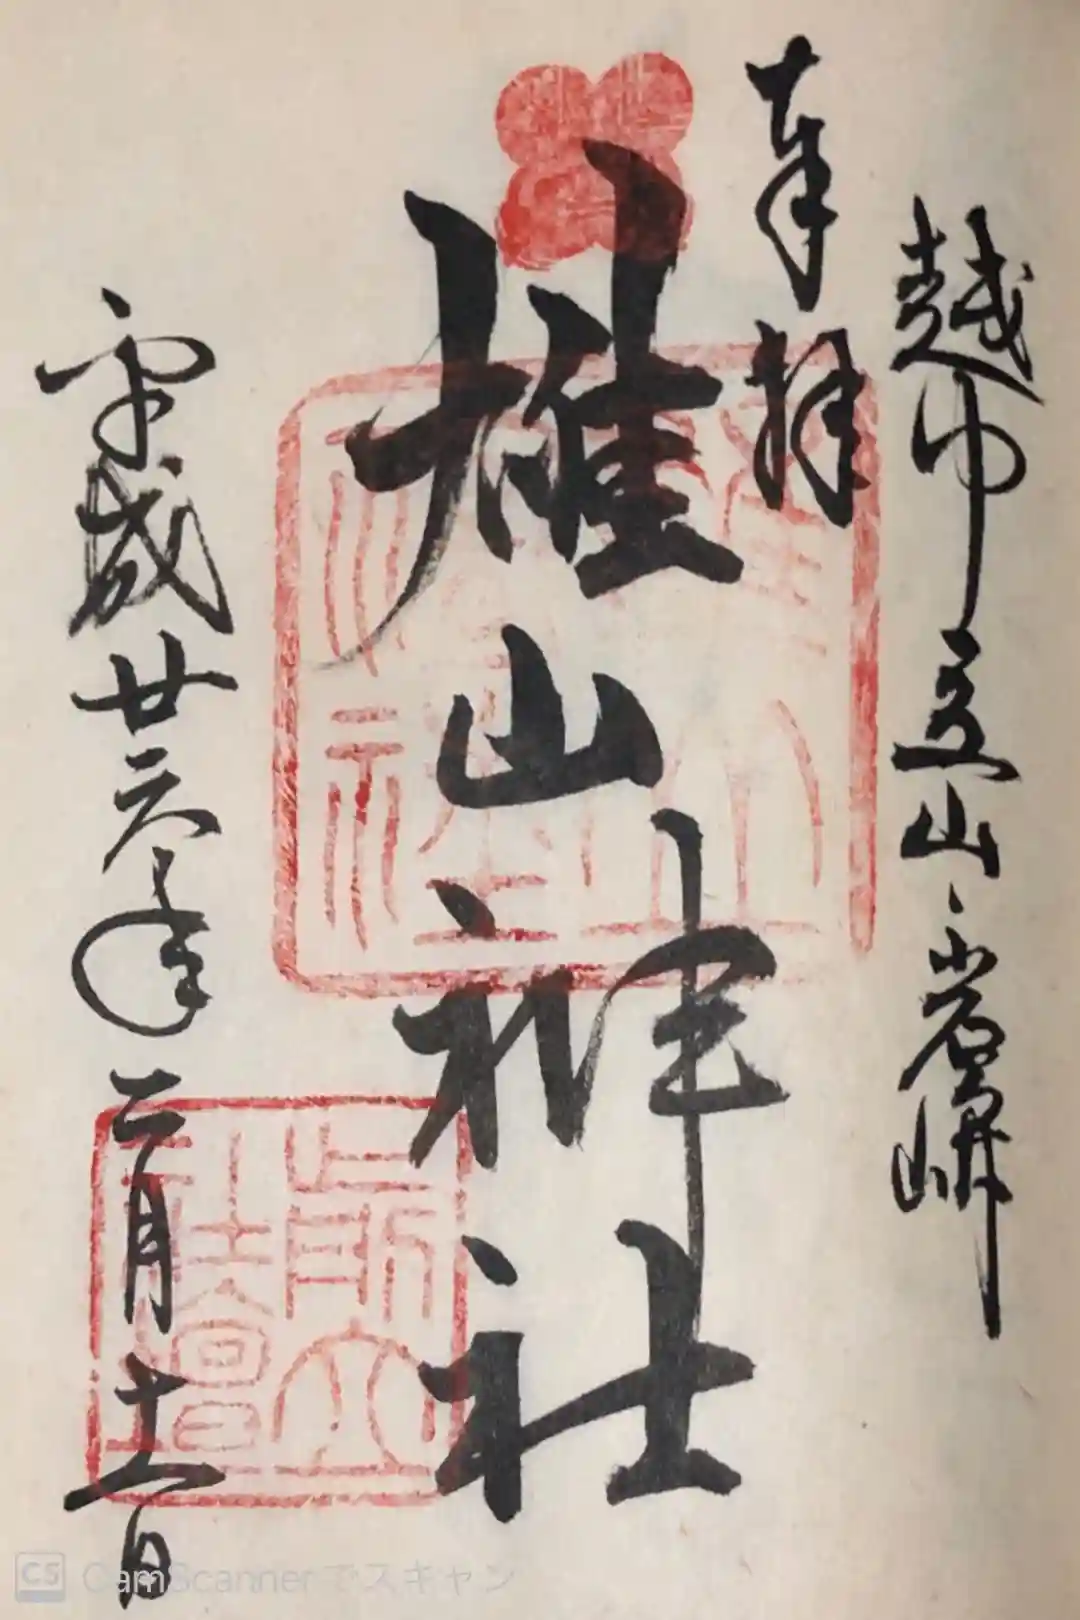 越中立山、岩峅
奉拝
雄山神社
平成廿六年二月十一日
前立
社壇
CS CamScannerでスキャン